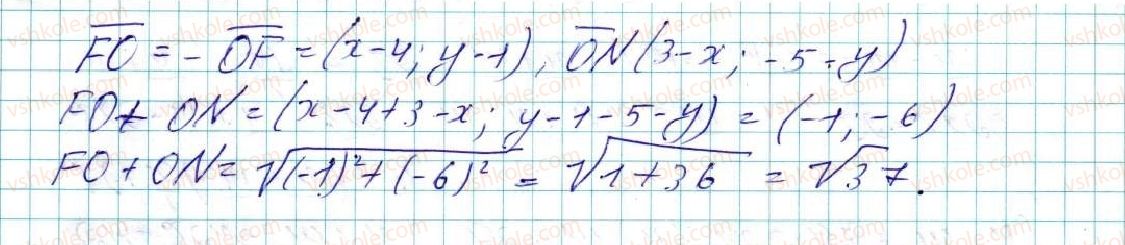 FO = - OF = (x-4; y-1), ON(3-x; -5-y)
FO + ON = (x-4+3-x; y-1-5-y) = (-1; -6)
FO + ON = √(-1)²+(-6)² = √1+36 = √37.